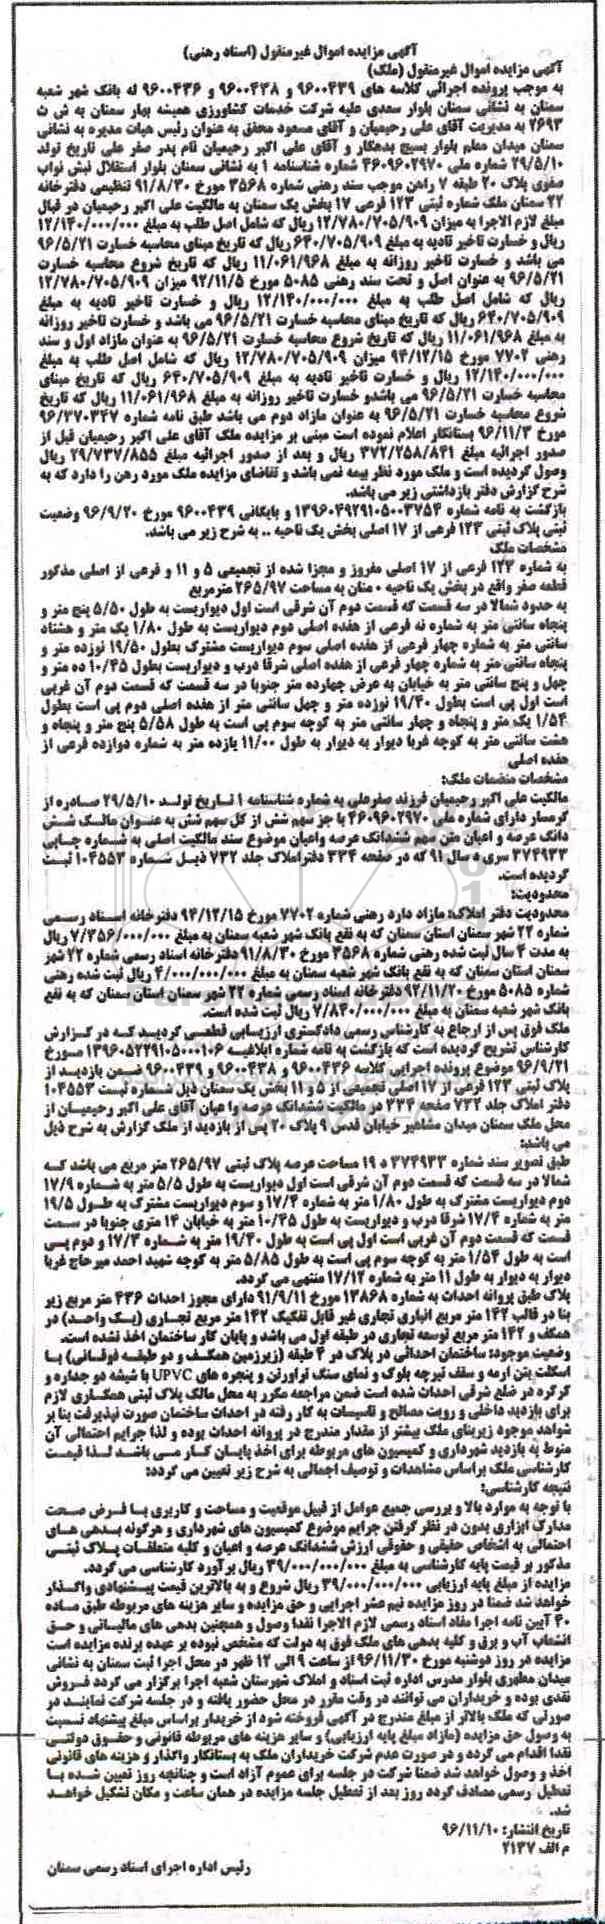 آگهی مزایده اموال غیرمنقول (اسناد رهنی)
آگهی مزایده اموال غیرمنقول (ملک)
به موجب پرونده اجرائی کلاسه های ۹۶۰۰۴۳۹ و ۹۶۰۰۴۳۸ و ۹۶۰۰۴۳۶ له بانک شهر شعبه
سمنان به نشانی سمنان بلوار سعدی علیه شرکت خدمات کشاورزی همیشه بهار سمنان به ش ث
۲۶۹۳ به مدیریت آقای علی رحیمیان و آقای مسعود محقق به عنوان رئیس هیات مدیره به نشانی
سمنان میدان معلم بلوار بسیج بدهکار و آقای علی اکبر رحیمیان نام پدر صفر علی تاریخ تولد
۲۹/۵/۱۰ شماره ملی ۴۶۰۹۶۰۲۹۷۰ شماره شناسنامه ۱ به نشانی سمنان بلوار استقلال نبش نواب
صفوی پلاک ۲۰ طبقه ۷ راهن موجب سند رهنی شماره ۳۵۶۸ مورخ ۹۱/۸/۳۰ تنظیمی دفترخانه
۲۲ سمنان ملک شماره ثبتی ۱۲۳ فرعی ۱۷ بخش یک سمنان به مالکیت علی اکبر رحیمیان در قبال
مبلغ لازم الاجرا به میزان ۱۲/۷۸۰/۷۰۵/۹۰۹ ریال که شامل اصل طلب به مبلغ ۱۲/۱۴۰/۰۰۰/۰۰۰
ریال و خسارت تاخیر تادیه به مبلغ ۶۴۰/۷۰۵/۹۰۹ ریال که تاریخ مبنای محاسبه خسارت ۹۶/۵/۲۱
می باشد و خسارت تاخیر روزانه به مبلغ ۱۱/۰۶۱/۹۶۸ ریال که تاریخ شروع محاسبه خسارت
۹۶/۵/۲۱ به عنوان اصل و تحت سند رهنی ۵۰۸۵ مورخ ۹۲/۱۱/۵ میزان ۱۲/۷۸۰/۷۰۵/۹۰۹
ریال که شامل اصل طلب به مبلغ ۱۲/۱۴۰/۰۰۰/۰۰۰ ریال و خسارت تاخیر تادیه به مبلغ
۶۴۰/۷۰۵/۹۰۹ ریال که تاریخ مبنای محاسبه خسارت ۹۶/۵/۲۱ می باشد و خسارت تاخیر روزانه
به مبلغ ۱۱/۰۶۱/۹۶۸ ریال که تاریخ شروع محاسبه خسارت ۹۶/۵/۲۱ به عنوان مازاد اول و سند
رهنی ۷۷۰۲ مورخ ۹۴/۱۲/۱۵ میزان ۱۲/۷۸۰/۷۰۵/۹۰۹ ریال که شامل اصل طلب به مبلغ
۱۲/۱۴۰/۰۰۰/۰۰۰ ریال و خسارت تاخیر تادیه به مبلغ ۶۴۰/۷۰۵/۹۰۹ ریال که تاریخ مبنای
محاسبه خسارت ۹۶/۵/۲۱ می باشدو خسارت تاخیر روزانه به مبلغ ۱۱/۰۶۱/۹۶۸ ریال که تاریخ
شروع محاسبه خسارت ۹۶/۵/۲۱ به عنوان مازاد دوم می باشد طبق نامه شماره ۹۶/۳۷۰۳۴۷
مورخ ۹۶/۱۱/۳ بستانکار اعلام نموده است مبنی بر مزایده ملک آقای علی اکبر رحیمیان قبل از
صدور اجرائیه مبلغ ۳۷۲/۲۵۸/۸۴۱ ریال و بعد از صدور اجرائیه مبلغ ۲۹/۷۳۷/۸۵۵ ریال
وصول گردیده است و ملک مورد نظر بیمه نمی باشد و تقاضای مزایده ملک مورد رهن را دارد که به
شرح گزارش دفتر بازداشتی زیر می باشد.
بازگشت به نامه شماره ۱۳۹۶۰۴۹۲۹۱۰۵۰۰۳۷۵۴ و بایگانی ۹۶۰۰۴۳۹ مورخ ۹۶/۹/۲۰ وضعیت
ثبتی پلاک ثبتی ۱۲۳ فرعی از ۱۷ اصلی بخش یک ناحیه .. به شرح زیر می باشد.
مشخصات ملک
به شماره ۱۲۳ فرعی از ۱۷ اصلی مفروز و مجزا شده از تجمیعی ۵ و ۱۱ و فرعی از اصلی مذکور
قطعه صفر واقع در بخش یک ناحیه ۰ منان به مساحت ۲۶۵/۹۷ مترمربع
به حدود شمالا در سه قسمت که قسمت دوم آن شرقی است اول دیواریست به طول ۵/۵۰ پنج متر و
پنجاه سانتی متر به شماره نه فرعی از هفده اصلی دوم دیواریست به طول ۱/۸۰ یک متر و هشتاد
سانتی متر به شماره چهار فرعی از هفده اصلی سوم دیواریست مشترک بطول ۱۹/۵۰ نوزده متر و
پنجاه سانتی متر به شماره چهار فرعی از هفده اصلی شرقا درب و دیواریست بطول ۱۰/۴۵ ده متر و
چهل و پنج سانتی متر به خیابان به عرض چهارده متر جنوبا در سه قسمت که قسمت دوم آن غربی
است اول پی است بطول ۱۹/۴۰ نوزده متر و چهل سانتی متر از هفده اصلی دوم پی است بطول
۱/۵۴ یک متر و پنجاه و چهار سانتی متر به کوچه سوم پی است به طول ۵/۵۸ پنج متر و پنجاه و
هشت سانتی متر به کوچه غربا دیوار به دیوار به طول ۱۱/۰۰ یازده متر به شماره دوازده فرعی از
هفده اصلی
مشخصات منضمات ملک:
مالکیت علی اکبر رحیمیان فرزند صفرعلی به شماره شناسنامه ۱ تاریخ تولد ۲۹/۵/۱۰ صادره از
گرمسار دارای شماره ملی ۴۶۰۹۶۰۲۹۷۰ با جز سهم شش از کل سهم شش به عنوان مالک شش
دانگ عرصه و اعیان متن سهم ششدانگ عرصه واعیان موضوع سند مالکیت اصلی به شماره چاپی
۳۷۴۹۳۳ سری د سال ۹۱ که در صفحه ۳۳۴ دفتراملاک جلد ۷۳۲ ذیل شماره ۱۰۴۵۵۳ ثبت
گردیده است.
محدودیت:
محدودیت دفتر املاک: مازاد دارد رهنی شماره ۷۷۰۲ مورخ ۹۴/۱۲/۱۵ دفترخانه اسناد رسمی
شماره ۲۲ شهر سمنان استان سمنان که به نفع بانک شهر شعبه سمنان به مبلغ ۷/۳۵۶/۰۰۰/۰۰۰ ریال
به مدت ۴ سال ثبت شده رهنی شماره ۳۵۶۸ مورخ ۹۱/۸/۳۰ دفترخانه اسناد رسمی شماره ۲۲ شهر
سمنان استان سمنان که به نفع بانک شهر شعبه سمنان به مبلغ ۴/۰۰۰/۰۰۰/۰۰۰ ریال ثبت شده رهنی
شماره ۵۰۸۵ مورخ ۹۲/۱۱/۲۰ دفترخانه اسناد رسمی شماره ۲۲ شهر سمنان استان سمنان که به نفع
بانک شهر شعبه سمنان به مبلغ ۷/۸۴۰/۰۰۰/۰۰۰ ریال ثبت شده است.
ملک فوق پس از ارجاع به کارشناس رسمی دادگستری ارزیابی قطعی گردید که در گزارش
کارشناس تشریح گردیده است که بازگشت به نامه شماره ابلاغیه ۱۳۹۶۰۵۲۲۹۱۰۵۰۰۰۱۰۶ مورخ
۹۶/۹/۲۱ موضوع پرونده اجرایی کلاسه ۹۶۰۰۴۳۶ و ۹۶۰۰۴۳۸ و ۹۶۰۰۴۳۹ ضمن بازدید از
پلاک ثبتی ۱۲۳ فرعی از ۱۷ اصلی تجمیعی از ۵ و ۱۱ بخش یک سمنان ذیل شماره ثبت ۱۰۴۵۵۳
دفتر املاک جلد ۷۳۲ صفحه ۳۳۴ در مالکیت ششدانگ عرصه و اعیان آقای علی اکبر رحیمیان از
محل ملک سمنان میدان مشاهیر خیابان قدس ۹ پلاک ۲۰ پس از بازدید از ملک گزارش به شرح ذیل
می باشد:
طبق تصویر سند شماره ۳۷۴۹۳۳ د ۱۹ مساحت عرصه پلاک ثبتی ۲۶۵/۹۷ متر مربع می باشد که
شمالا در سه قسمت که قسمت دوم آن شرقی است اول دیواریست به طول ۵/۵ متر به شماره ۱۷/۹
دوم دیواریست مشترک به طول ۱/۸۰ متر به شماره ۱۷/۴ و سوم دیواریست مشترک به طول ۱۹/۵
متر به شماره ۱۷/۴ شرقا درب و دیواریست به طول ۱۰/۴۵ متر به خیابان ۱۴ متری جنوبا در سمت
قسمت که قسمت دوم آن غربی است اول پی است به طول ۱۹/۴۰ متر به شماره ۱۷/۳ و دوم پی
است به طول ۱/۵۴ متر به کوچه سوم پی است به طول ۵/۸۵ متر به کوچه شهید احمد میرحاج غربا
دیوار به دیوار به طول ۱۱ متر به شماره ۱۷/۱۲ منتهی می گردد.
پلاک طبق پروانه احداث به شماره ۱۳۸۶۸ مورخ ۹۱/۹/۱۱ دارای مجوز احداث ۴۳۶ متر مربع زیر
بنا در قالب ۱۴۲ متر مربع انباری تجاری غیر قابل تفکیک ۱۴۲ متر مربع تجاری (یک واحد) در
همکف و ۱۴۲ متر مربع توسعه تجاری در طبقه اول می باشد و پایان کار ساختمان اخذ نشده است.
وضعیت موجود: ساختمان احداثی در پلاک در ۴ طبقه (زیرزمین همکف و دو طبقه فوقانی) با
اسکلت بتن آرمه و سقف تیرچه بلوک و نمای سنگ تراورتن و پنجره های UPVC با شیشه دو جداره و
کرکره در ضلع شرقی احداث شده است ضمن مراجعه مکرر به محل مالک پلاک ثبتی همکاری لازم
برای بازدید داخلی و رویت مصالح و تاسیسات به کار رفته در احداث ساختمان صورت نپذیرفت بنا بر
شواهد موجود زیربنای ملک بیشتر از مقدار مندرج در پروانه احداث بوده و لذا جرایم احتمالی آن
منوط به بازدید شهرداری و کمیسیون های مربوطه برای اخذ پایان کار می باشد لذا قیمت
کارشناسی ملک براساس مشاهدات و توصیف اجمالی به شرح زیر تعیین می گردد:
نتیجه کارشناسی:
با توجه به موارد بالا و بررسی جمیع عوامل از قبیل موقعیت و مساحت و کاربری با فرض صحت
مدارک ابزاری بدون در نظر گرفتن جرایم موضوع کمیسیون های شهرداری و هرگونه بدهی های
احتمالی به اشخاص حقیقی و حقوقی ارزش ششدانگ عرصه و اعیان و کلیه متعلقات پلاک ثبتی
مذکور بر قیمت پایه کارشناسی به مبلغ ۳۹/۰۰۰/۰۰۰/۰۰۰ ریال برآورد کارشناسی می گردد.
مزایده از مبلغ پایه ارزیابی ۳۹/۰۰۰/۰۰۰/۰۰۰ ریال شروع و به بالاترین قیمت پیشنهادی واگذار
خواهد شد ضمنا در روز مزایده نیم عشر اجرایی و حق مزایده و سایر هزینه های مربوطه طبق ماده
۴۰ آیین نامه اجرا مفاد اسناد رسمی لازم الاجرا نقدا وصول و همچنین بدهی های مالیاتی و حق
انشعاب آب و برق و کلیه بدهی های ملک فوق به دولت که مشخص نبوده بر عهده برنده مزایده است
مزایده در روز دوشنبه مورخ ۹۶/۱۱/۳۰ از ساعت ۹ الی ۱۲ ظهر در محل اجرا ثبت سمنان به نشانی
میدان مطهری بلوار مدرس اداره ثبت اسناد و املاک شهرستان شعبه اجرا برگزار می گردد فروش
نقدی بوده و خریداران می توانند در وقت مقرر در محل حضور یافته و در جلسه شرکت نمایند در
صورتی که ملک بالاتر از مبلغ مندرج در آگهی فروخته شود از خریدار براساس مبلغ پیشنهاد نسبت
به وصول حق مزایده (مازاد مبلغ پایه ارزیابی) و سایر هزینه های مربوطه قانونی و حقوق دولتی
نقدا اقدام می گردد و در صورت عدم شرکت خریداران ملک به بستانکار واگذار و هزینه های قانونی
اخذ و وصول خواهد شد ضمنا شرکت در جلسه برای عموم آزاد است و چنانچه روز تعیین شده با
تعطیل رسمی مصادف گردد روز بعد از تعطیل جلسه مزایده در همان ساعت و مکان تشکیل خواهد
شد.
تاریخ انتشار: ۹۶/۱۱/۱۰
م الف ۲۱۳۷
رئیس اداره اجرای اسناد رسمی سمنان